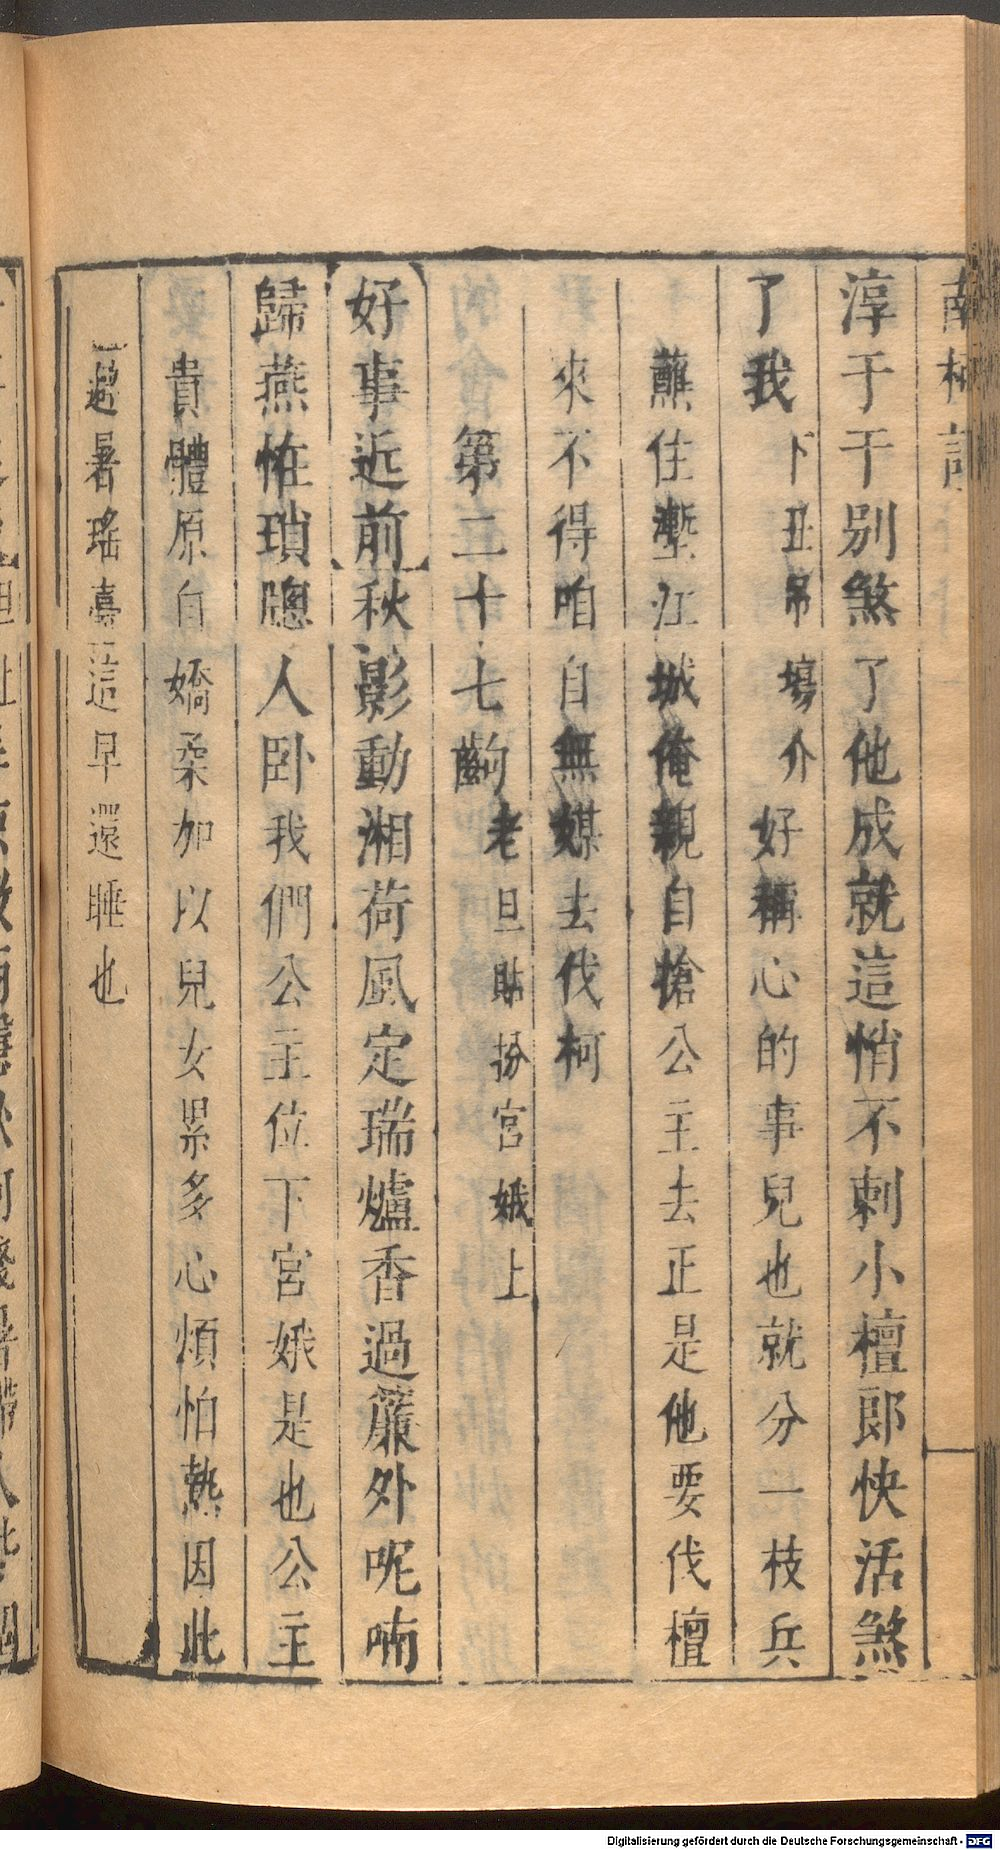 南柯記
淳于干別煞了他成就這悄不剌小檀郎快活煞
了我下丑吊場介好稱心的事兒也就分一枝兵
蘸住塹江城俺親自搶公主去正是他要伐檀
來不得咱自無媒去伐柯
第二十七齣老旦貼扮宮娥上
好事近前秋影動湘荷風定瑞爐香過簾外呢喃
歸燕惟瑣牕人卧我們公主位下宮娥是也公主
貴體原自嬌柔加以兒女累多心煩怕熱因此
避暑瑤臺這早還睡也
Digitalisierung gefördert durch die Deutsche Forschungsgemeinschaft - DFG